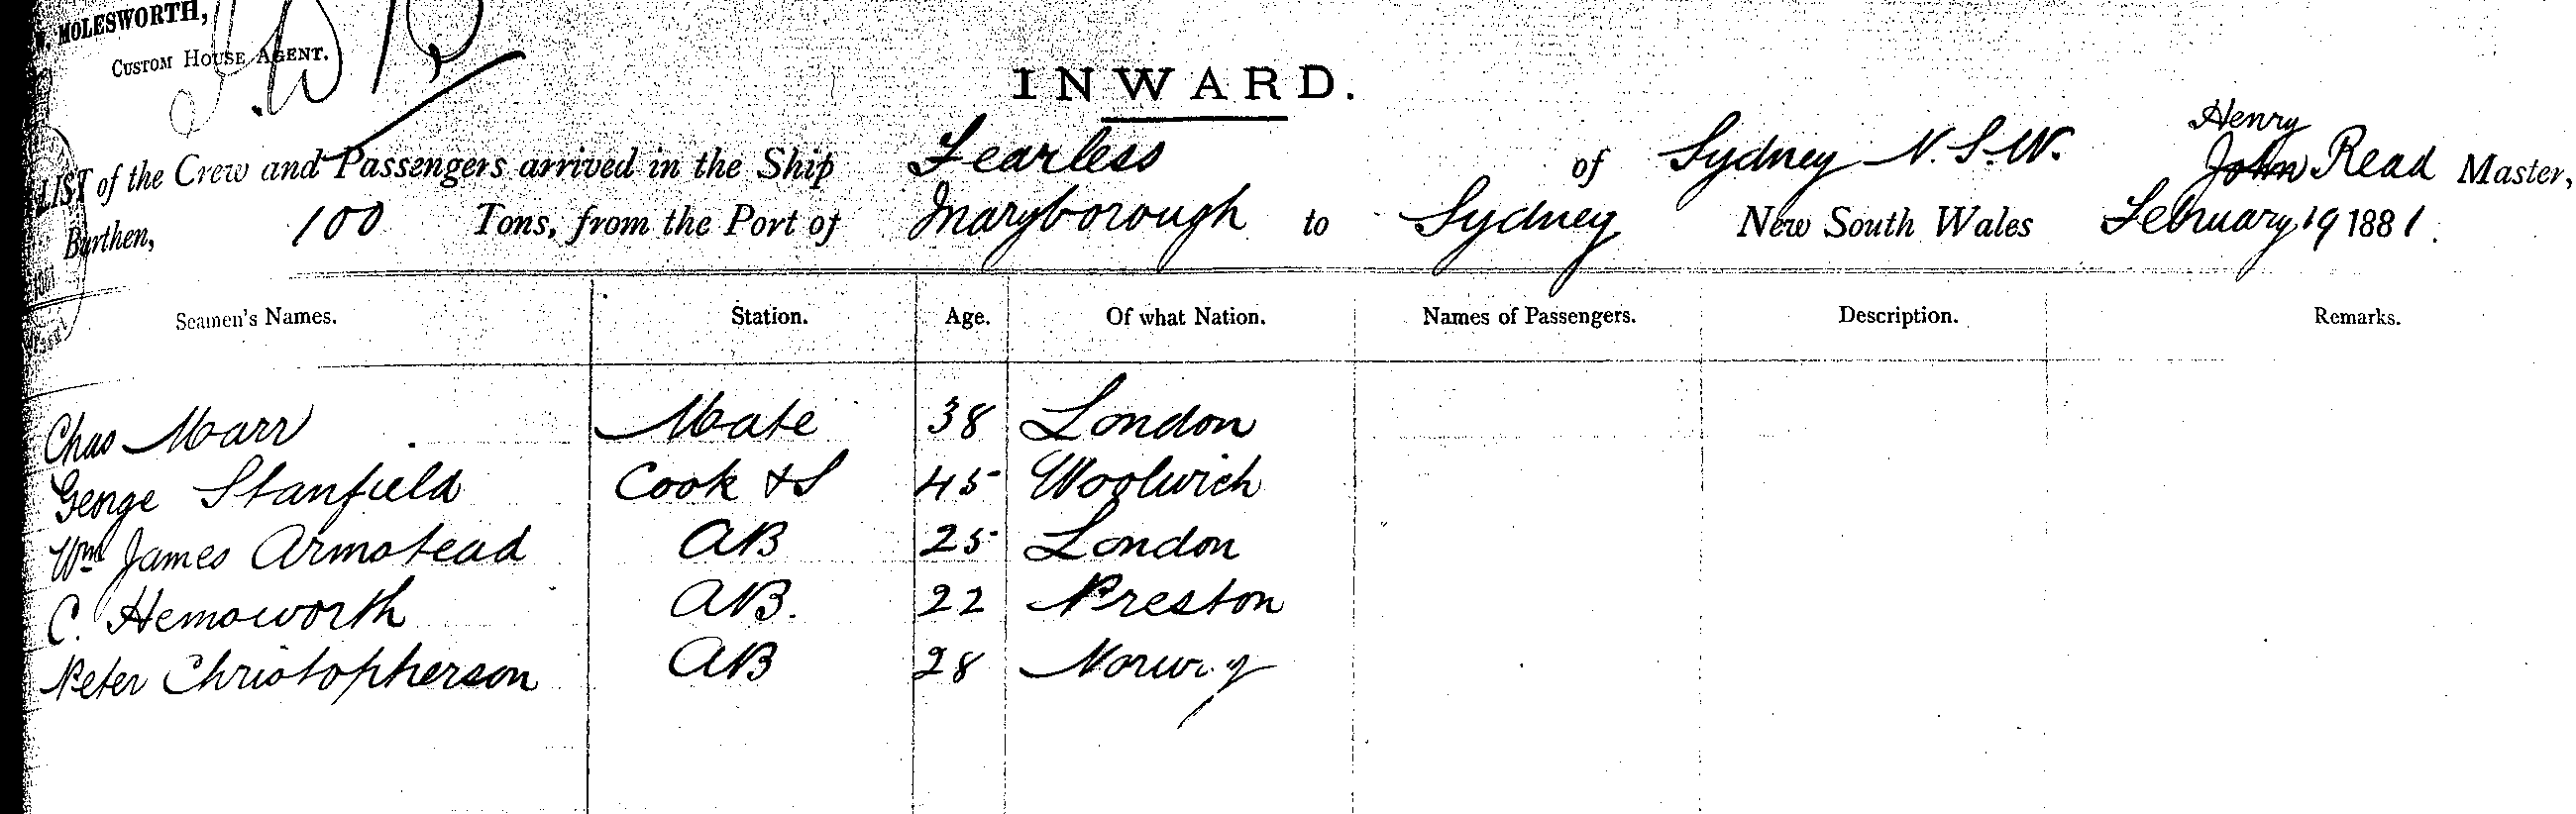 W. MOLESWORTH,
CUSTOM HOUSE AGENT.
INWARD.
LIST of the Crew and Passengers arrived in the Ship Fearless of Sydney N.S.W. Henry John Read Master,
Burthen, 100 Tons, from the Port of Maryborough to Sydney New South Wales February 19 1881.
Seamen's Names. Station. Age. Of what Nation. Names of Passengers. Description. Remarks.
Chas Marr Mate 38 London
George Stanfield Cook & S 45 Woolwich
Wm James Armstead AB 25 London
C. Hemsworth AB. 22 Preston
Peter Christopherson AB 28 Norway